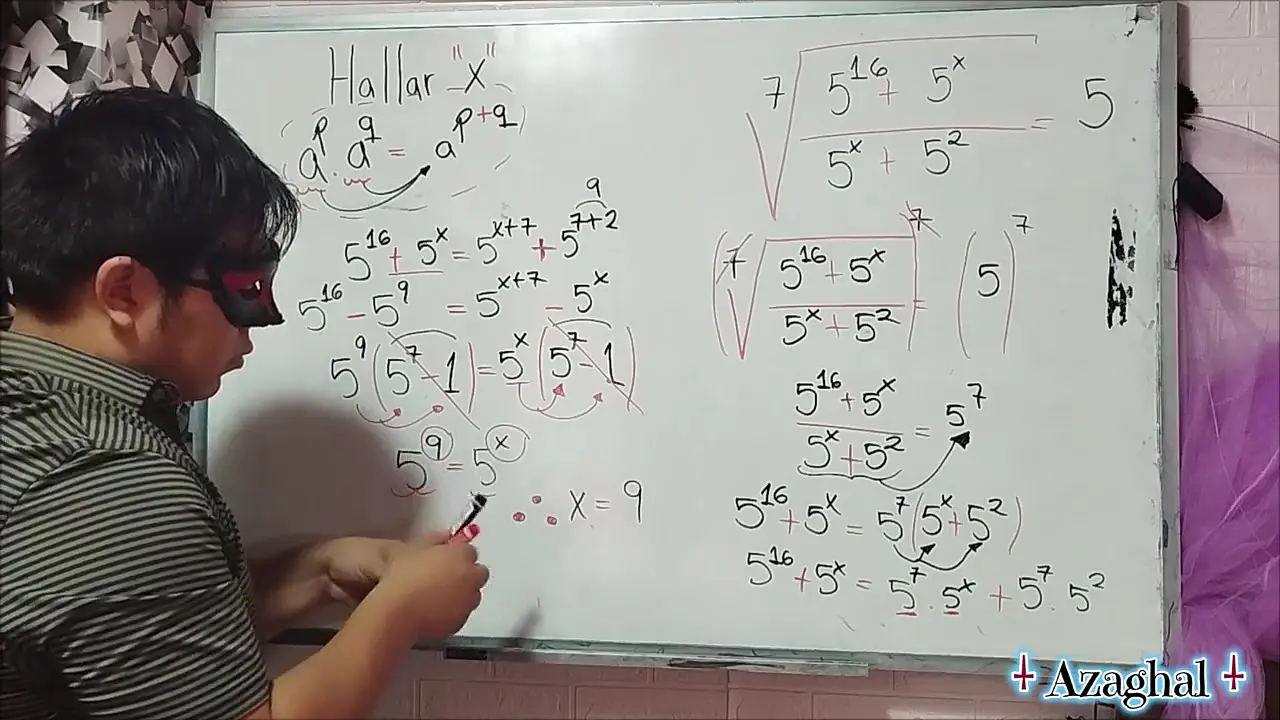 Hallar "x"
a^p · a^q = a^(p+q)
⁷√((5^16 + 5^x)/(5^x + 5^2)) = 5
(⁷√((5^16 + 5^x)/(5^x + 5^2)))^7 = (5)^7
(5^16 + 5^x)/(5^x + 5^2) = 5^7
5^16 + 5^x = 5^7(5^x + 5^2)
5^16 + 5^x = 5^7 · 5^x + 5^7 · 5^2
9
5^16 + 5^x = 5^(x+7) + 5^(7+2)
5^16 - 5^9 = 5^(x+7) - 5^x
5^9(5^7 - 1) = 5^x(5^7 - 1)
5^9 = 5^x
∴ x = 9
Azaghal